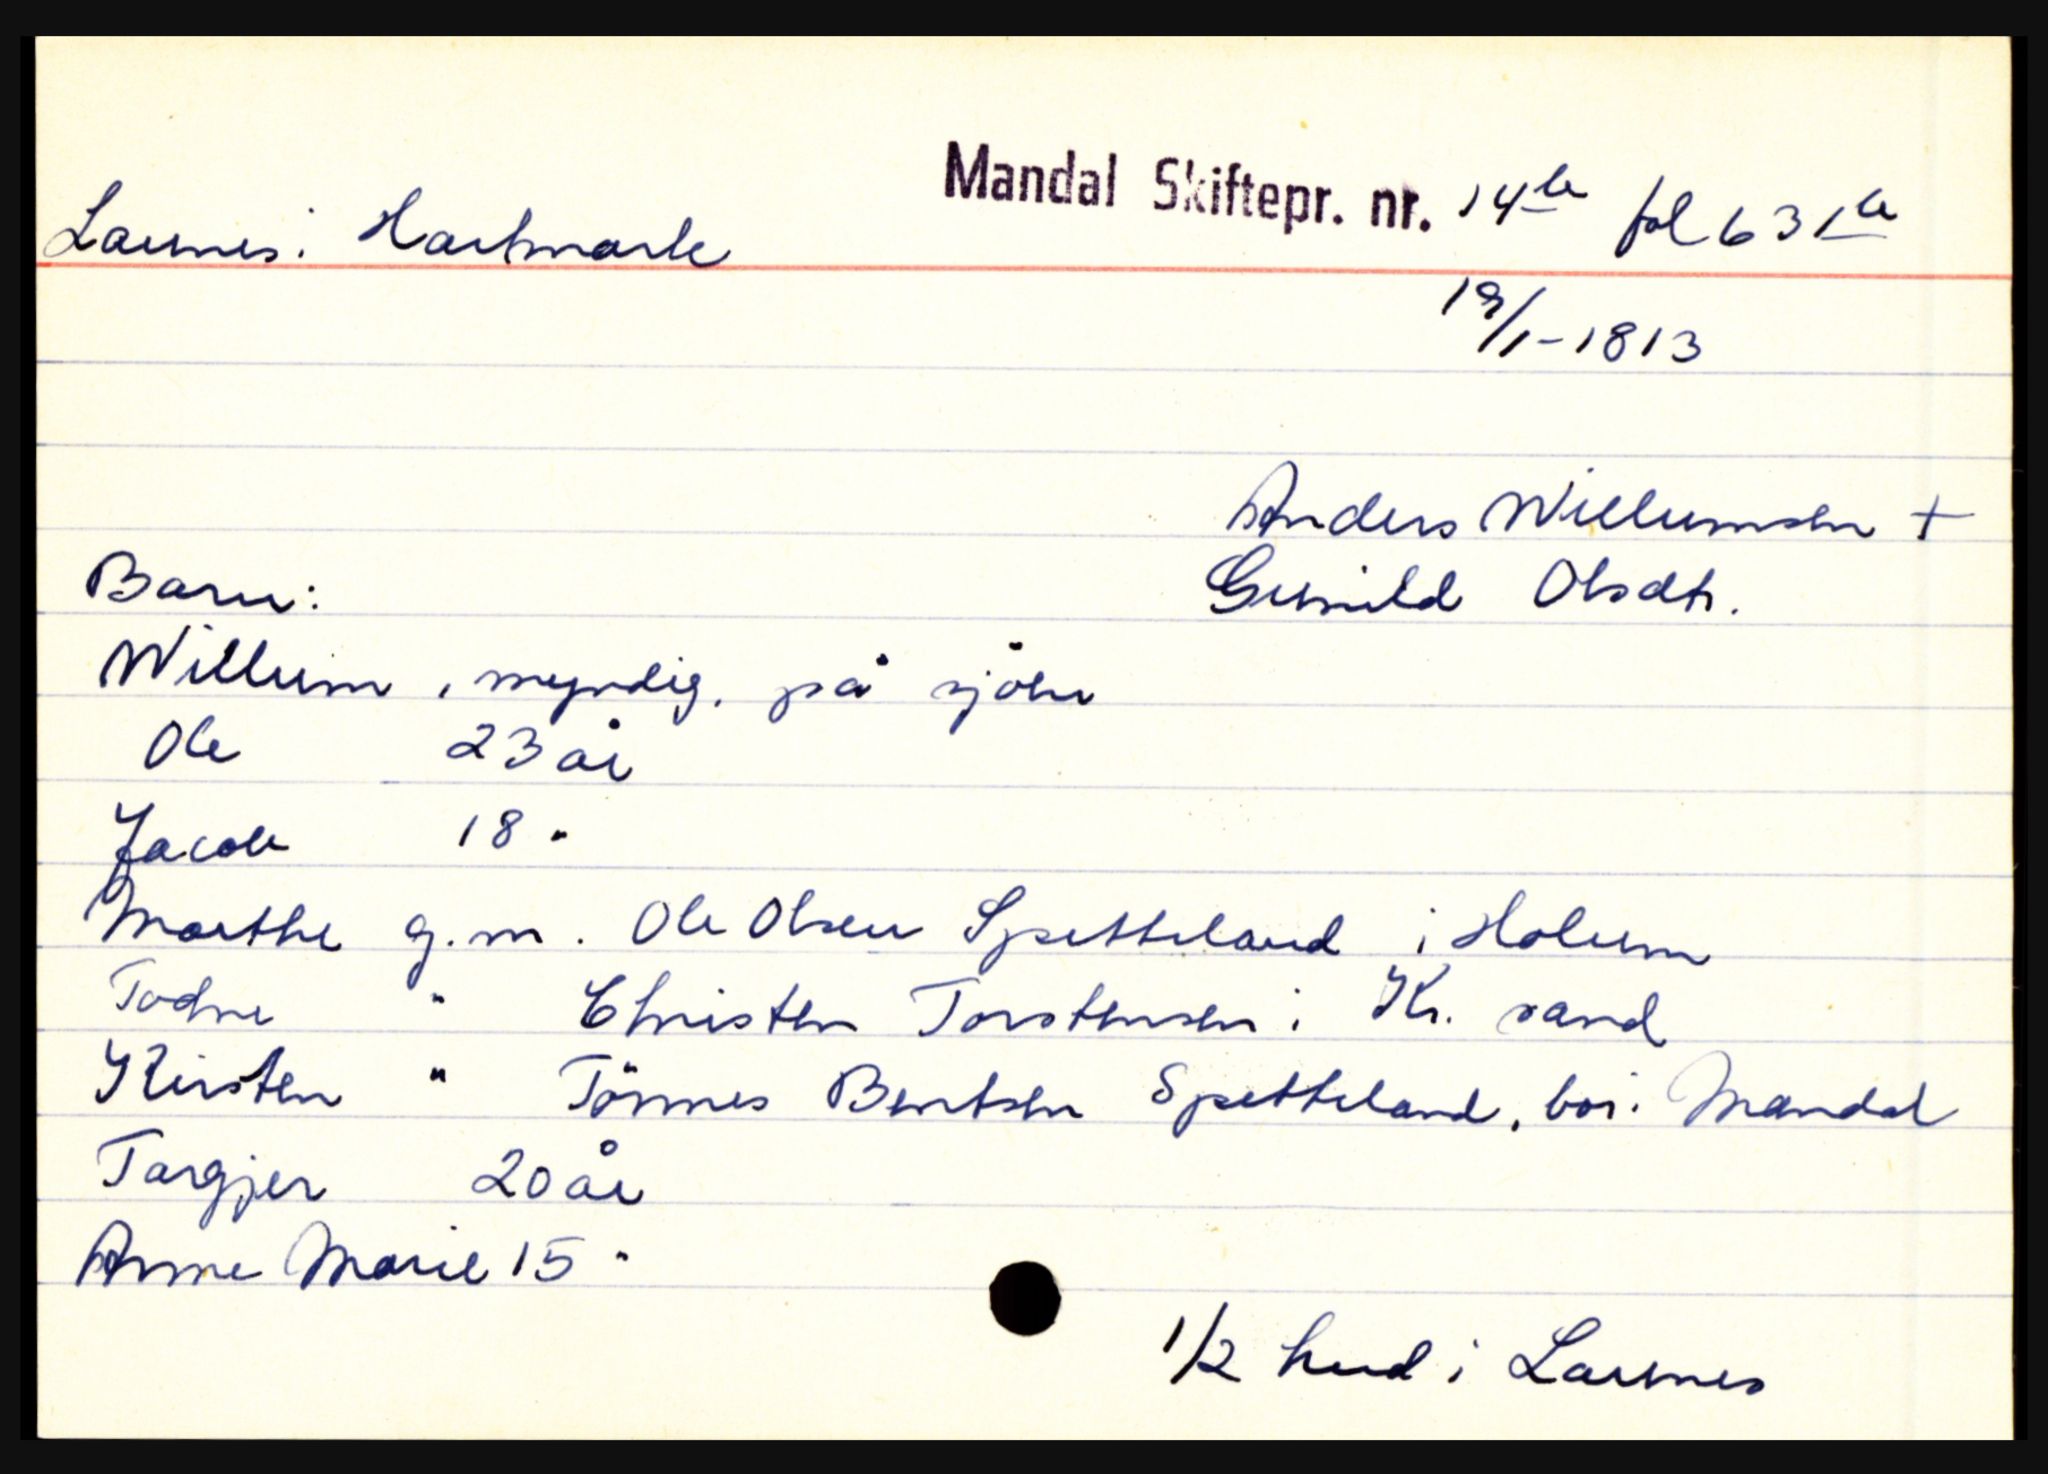 Mandal Skiftepr. nr. 14b fol 631b
Launes i Hartmark
19/1-1813
Anders Willumsen +
Gunild Olsdtr.
Barn:
Willum, myndig, på sjöen
Ole 23 år
Jacob 18 "
Marthe g.m. Ole Olsen Spetteland i Holum
Todne " Christen Torstensen i Kr. sand
Kirsten " Tönnes Bentsen Spetteland, bor i Mandal
Targjer 20 år
Anne Marie 15 "
1/2 hud i Launes